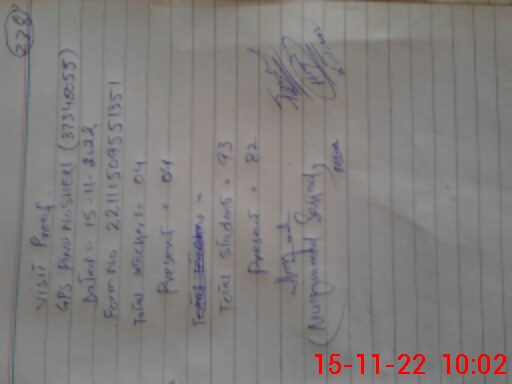 238
Visit Proof
GPS (37348055)
Dated = 15-11-2022
Form no: 22111509551351
Total teachers = 04
Present = 04
Total students = 93
Present = 82
(Muhammad Sajjad)
MEA
15-11-22 10:02